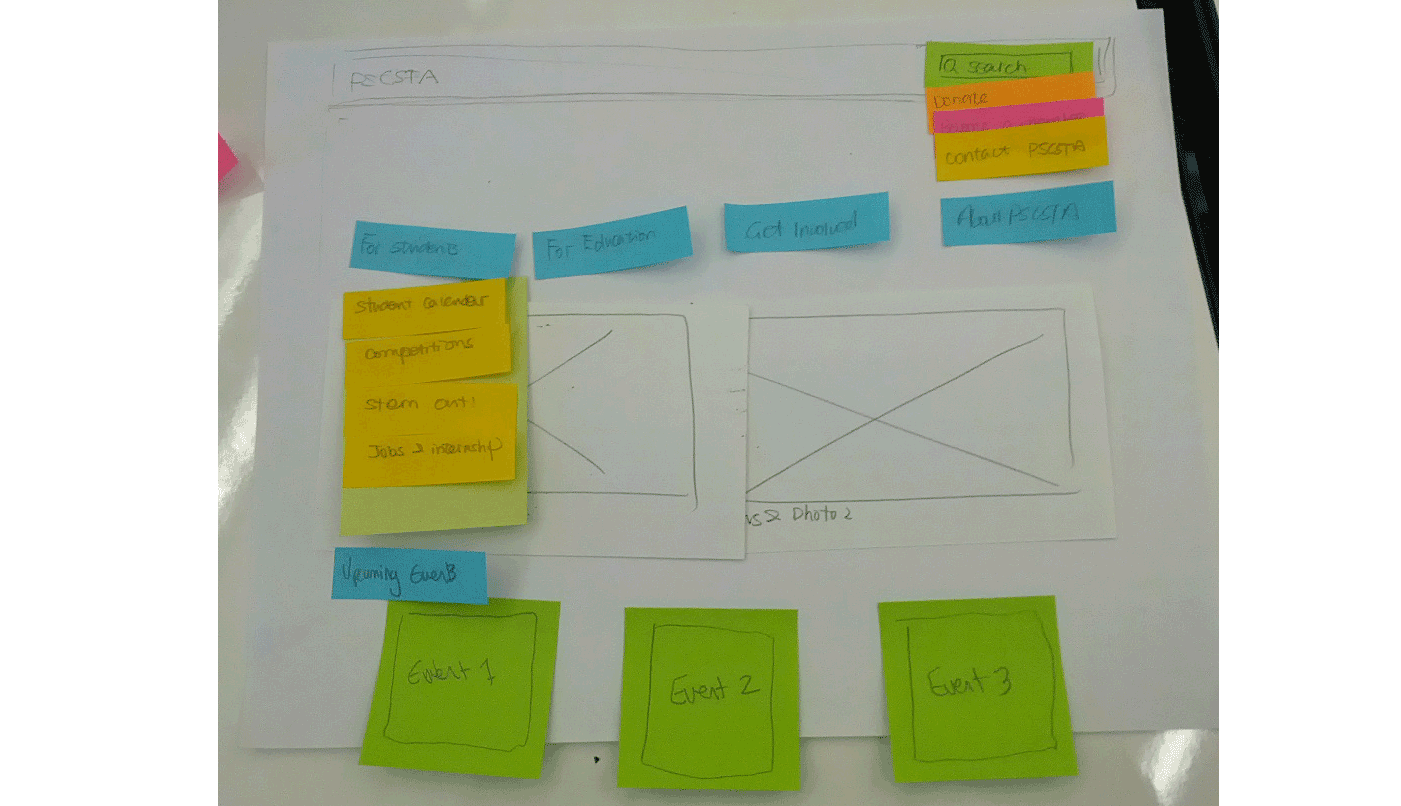 PSCSTA
Q search
Donate
contact PSCSTA
For students
For Education
Get Involved
About PSCSTA
Student Calendar
Competitions
Stem
Jobs & internship
& Photo 2
Event 1
Event 2
Event 3